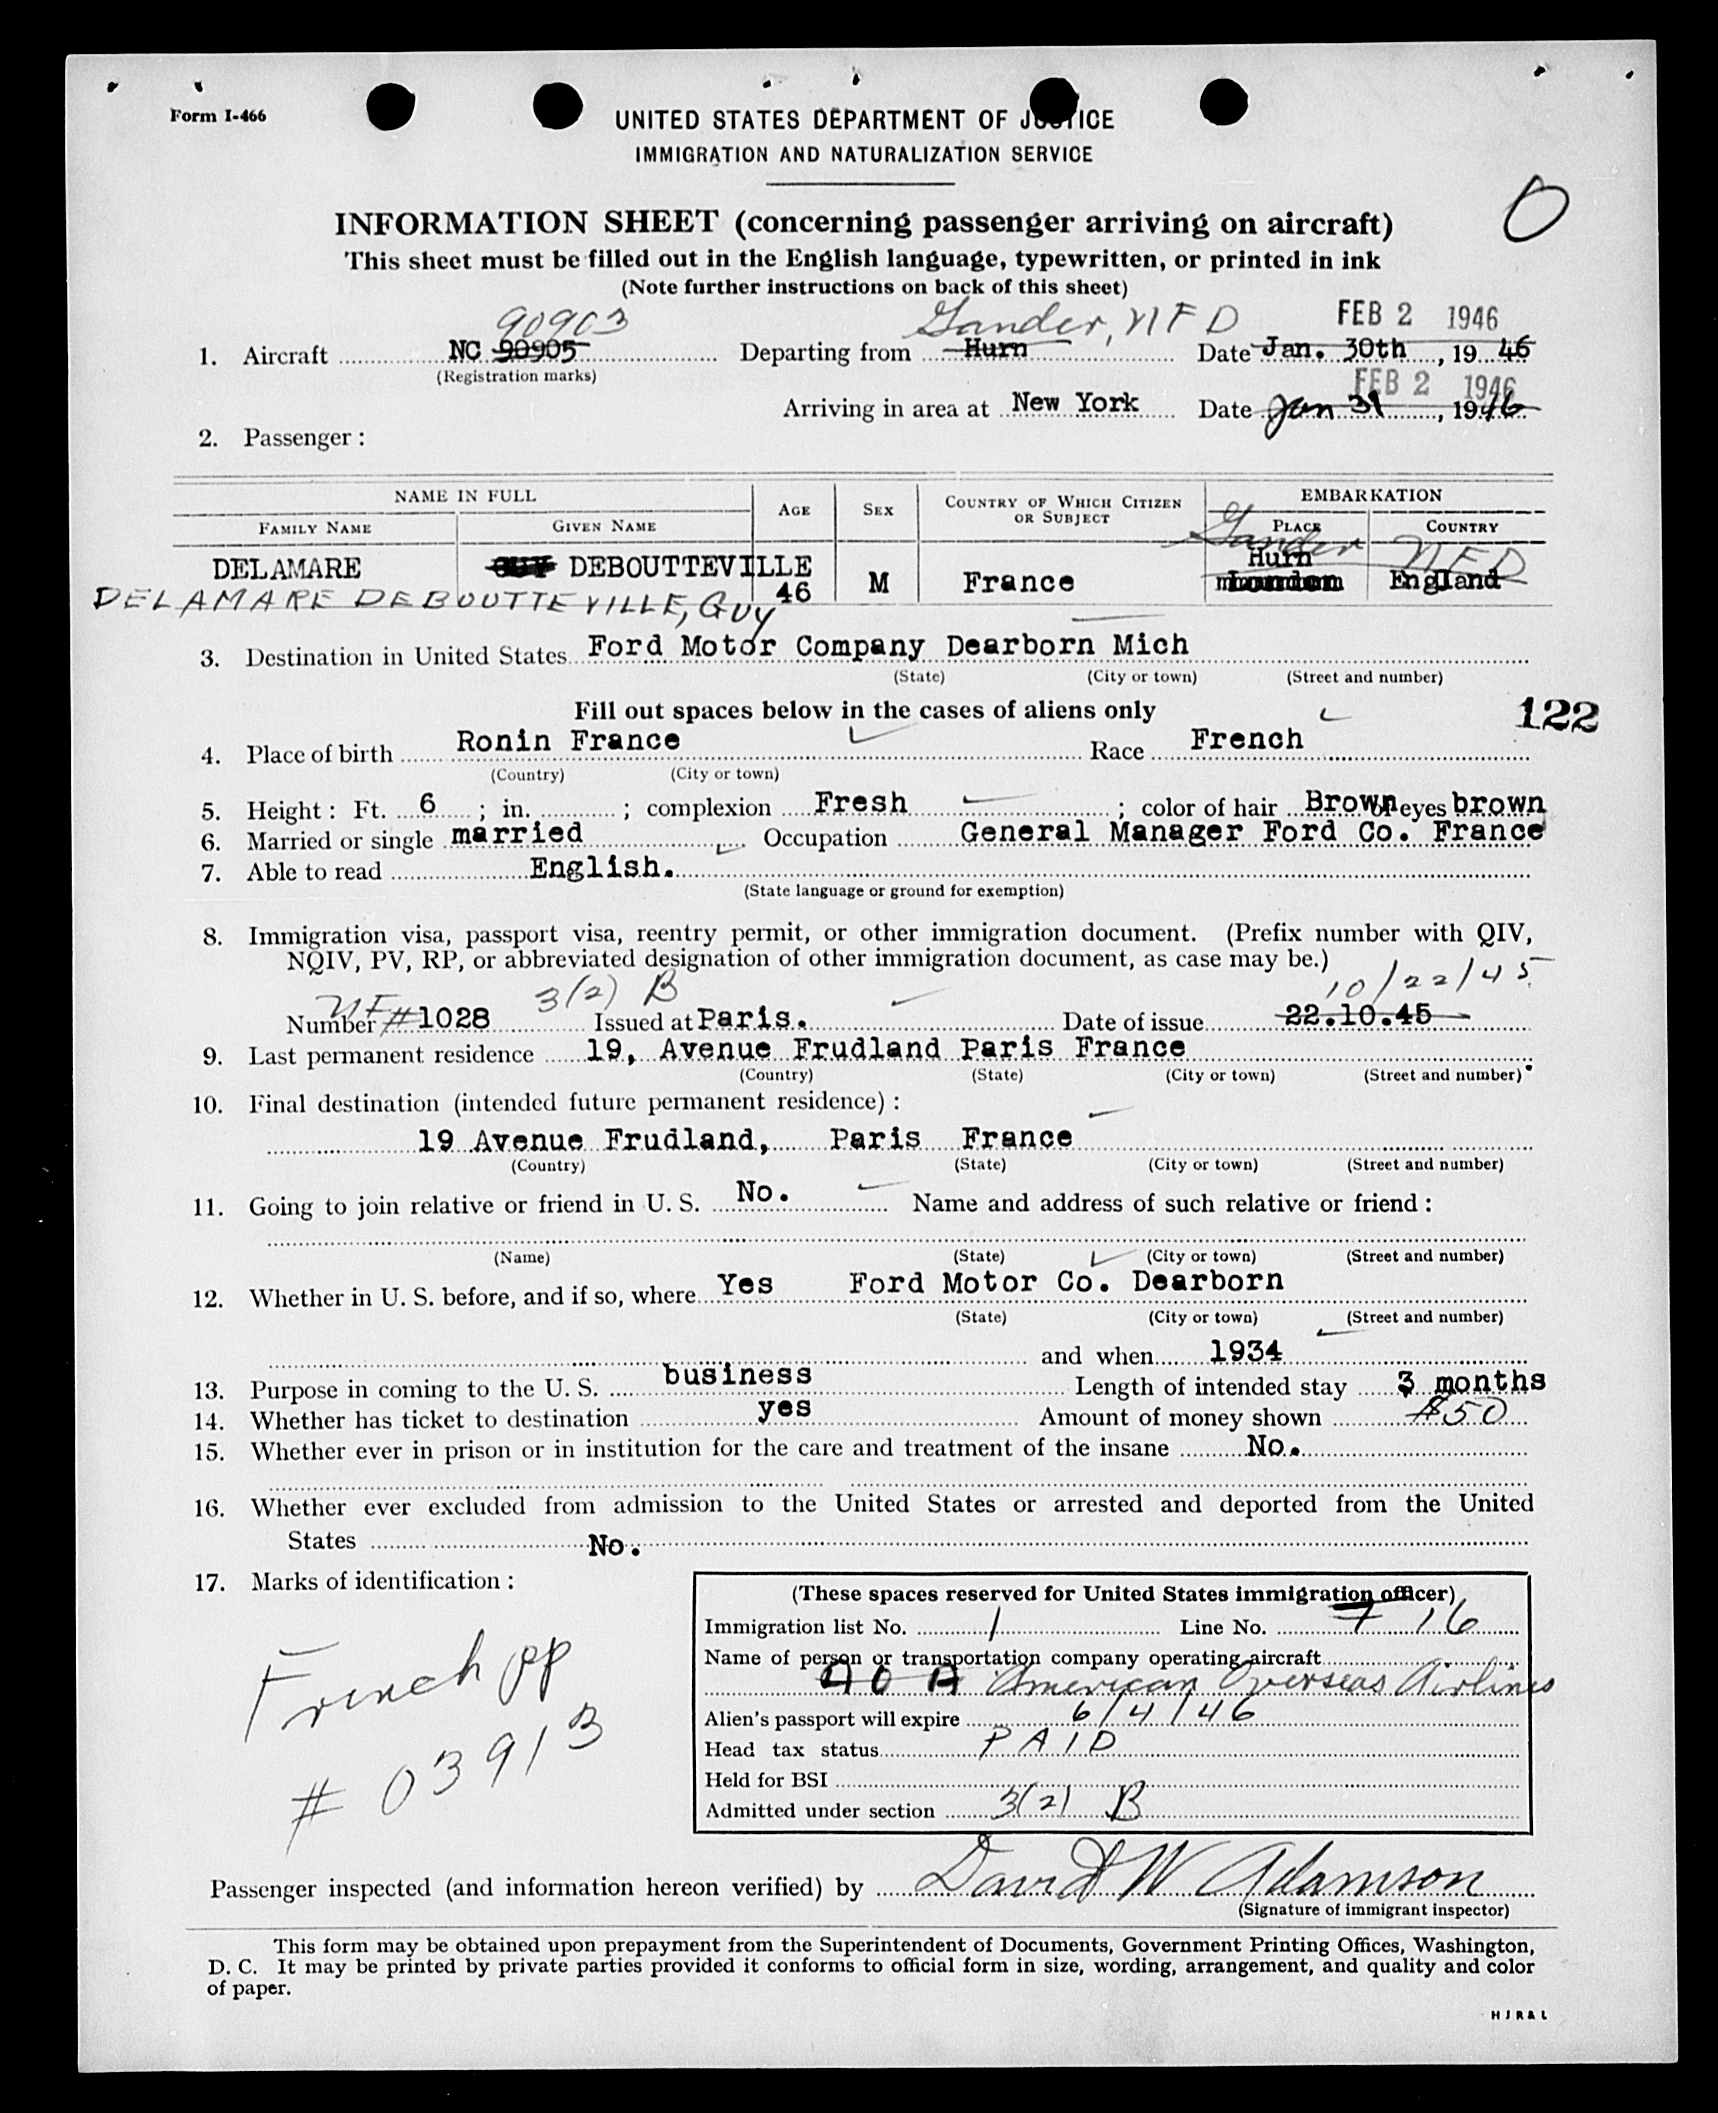 Form I-466
UNITED STATES DEPARTMENT OF JUSTICE
IMMIGRATION AND NATURALIZATION SERVICE
O
INFORMATION SHEET (concerning passenger arriving on aircraft)
This sheet must be filled out in the English language, typewritten, or printed in ink
(Note further instructions on back of this sheet)
90903 Gander, NFD FEB 2 1946
1. Aircraft NC 90905 Departing from Hurn Date Jan. 30th, 1946
(Registration marks) FEB 2 1946
Arriving in area at New York Date Jan 31, 1946
2. Passenger:
NAME IN FULL AGE SEX COUNTRY OF WHICH CITIZEN OR SUBJECT EMBARKATION
FAMILY NAME GIVEN NAME PLACE COUNTRY
Gander NFD
DELAMARE GUY DEBOUTTEVILLE 46 M France Hurn London England
DELAMARE DEBOUTTEVILLE, GUY
3. Destination in United States Ford Motor Company Dearborn Mich
(State) (City or town) (Street and number)
Fill out spaces below in the cases of aliens only
122
4. Place of birth Ronin France Race French
(Country) (City or town)
5. Height: Ft. 6; in. ; complexion Fresh; color of hair Brown eyes brown
6. Married or single married Occupation General Manager Ford Co. France
7. Able to read English.
(State language or ground for exemption)
8. Immigration visa, passport visa, reentry permit, or other immigration document. (Prefix number with QIV,
NQIV, PV, RP, or abbreviated designation of other immigration document, as case may be.)
3(2) B 10/22/45
Number #1028 Issued at Paris. Date of issue 22.10.45
9. Last permanent residence 19, Avenue Frudland Paris France
(Country) (State) (City or town) (Street and number)
10. Final destination (intended future permanent residence):
19 Avenue Frudland, Paris France
(Country) (State) (City or town) (Street and number)
11. Going to join relative or friend in U. S. No. Name and address of such relative or friend:
(Name) (State) (City or town) (Street and number)
12. Whether in U. S. before, and if so, where Yes Ford Motor Co. Dearborn
(State) (City or town) (Street and number)
and when 1934
13. Purpose in coming to the U. S. business Length of intended stay 3 months
14. Whether has ticket to destination yes Amount of money shown $50
15. Whether ever in prison or in institution for the care and treatment of the insane No.
16. Whether ever excluded from admission to the United States or arrested and deported from the United
States No.
17. Marks of identification:
French pp
# 03913
(These spaces reserved for United States immigration officer)
Immigration list No. 1 Line No. 7 16
Name of person or transportation company operating aircraft
AOA American Overseas Airlines
Alien's passport will expire 6/4/46
Head tax status PAID
Held for BSI
Admitted under section 3(2) B
Passenger inspected (and information hereon verified) by David W Adamson
(Signature of immigrant inspector)
This form may be obtained upon prepayment from the Superintendent of Documents, Government Printing Offices, Washington,
D. C. It may be printed by private parties provided it conforms to official form in size, wording, arrangement, and quality and color
of paper.
HJR&L